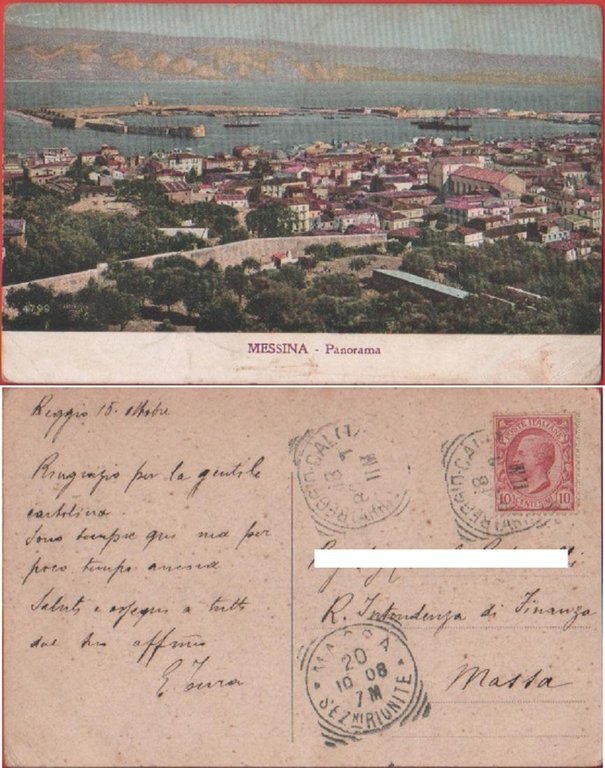 4799
MESSINA - Panorama
Reggio 15. ottobre
Ringrazio per la gentile
cartolina.
Sono sempre qui ma per
poco tempo ancora
Saluti e ossequi a tutti
dal suo affmo
E. Tura
REGGIO-CAL
POSTE ITALIANE
10 CENTESIMI 10
R. Intendenza di Finanza
Massa
MASSA
20
10 08
7M
SEZNI RIUNITE